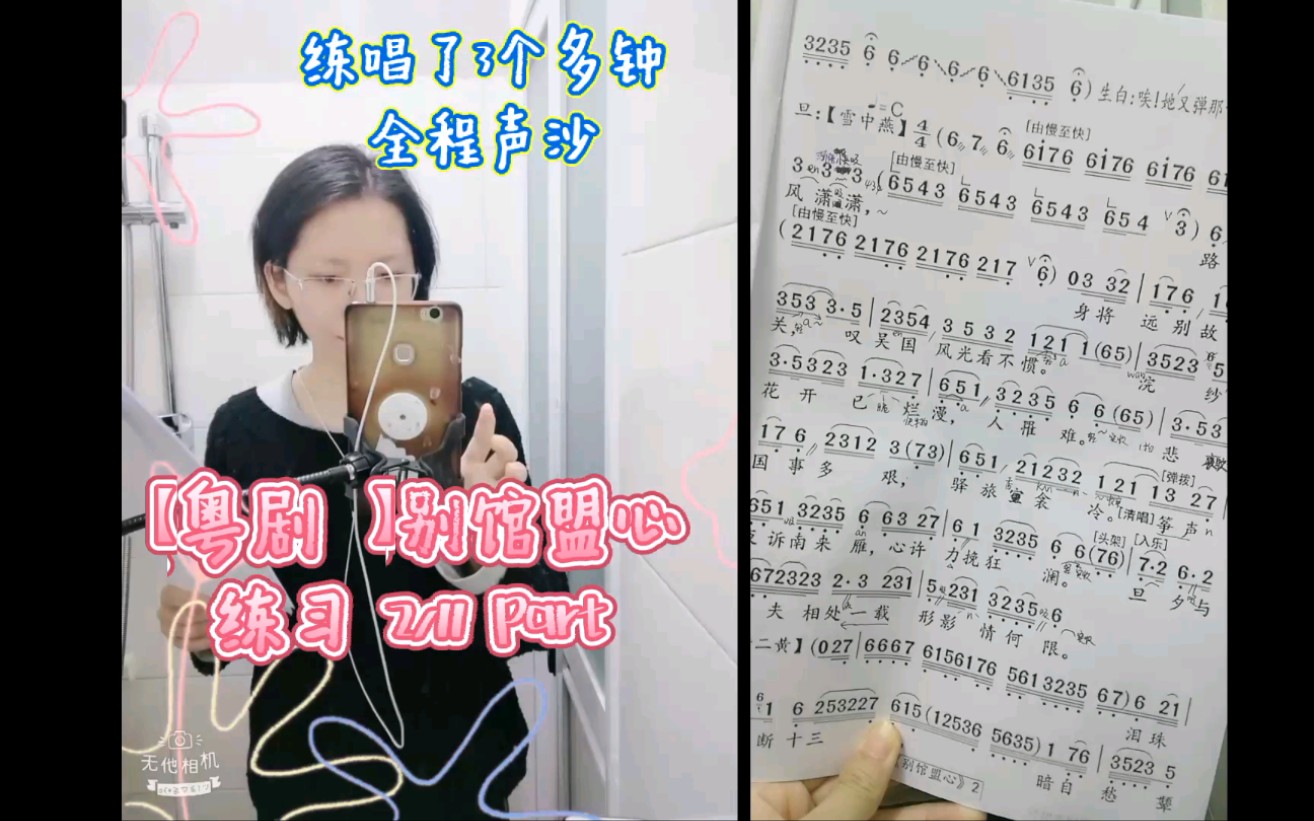 练唱了3个多钟
全程声沙
【粤剧 】别馆盟心
练习 2/11 Part
无他相机
3235 6 6 6 6 6 6135 6) 生白:唉!她又弹那
♩=C
旦:【雪中燕】4/4 (6 7 6 6i76 6i76 6i76
[由慢至快]
3 3 3 (6543 6543 6543 654 3) 6
[由慢至快]
风 潇 潇, 路
[由慢至快]
(2176 2176 2176 217 6) 03 32 | 176
身将 远别故
353 3·5 | 2354 3532 121 1(65) | 3523 5
关, 叹吴国 风光看不惯。 浣 纱
3·5323 1·327 | 651 3235 6 6(65) | 3·53
花 开 已 烂漫, 人 罹 难。 悲
176 2312 3(73) | 651 21232 121 13 27
[弹拨]
国 事 多 艰, 驿旅 衾 冷。[清唱] 筝声
651 3235 6 63 27 | 61 3235 6 6(76) | 7·2 6·2
[头架] [入乐]
诉南来 雁,心许 力挽狂 澜。 旦 夕与
672323 2·3 231 | 5 231 3235 6
夫 相处 一载 形影 情何 限。
二黄】(027 | 6667 6156176 5613235 67) 6 21 |
泪珠
1 6 253227 615 (12536 5635) 1 76 | 3523 5
断 十三 暗自 愁 颦
别馆盟心》2